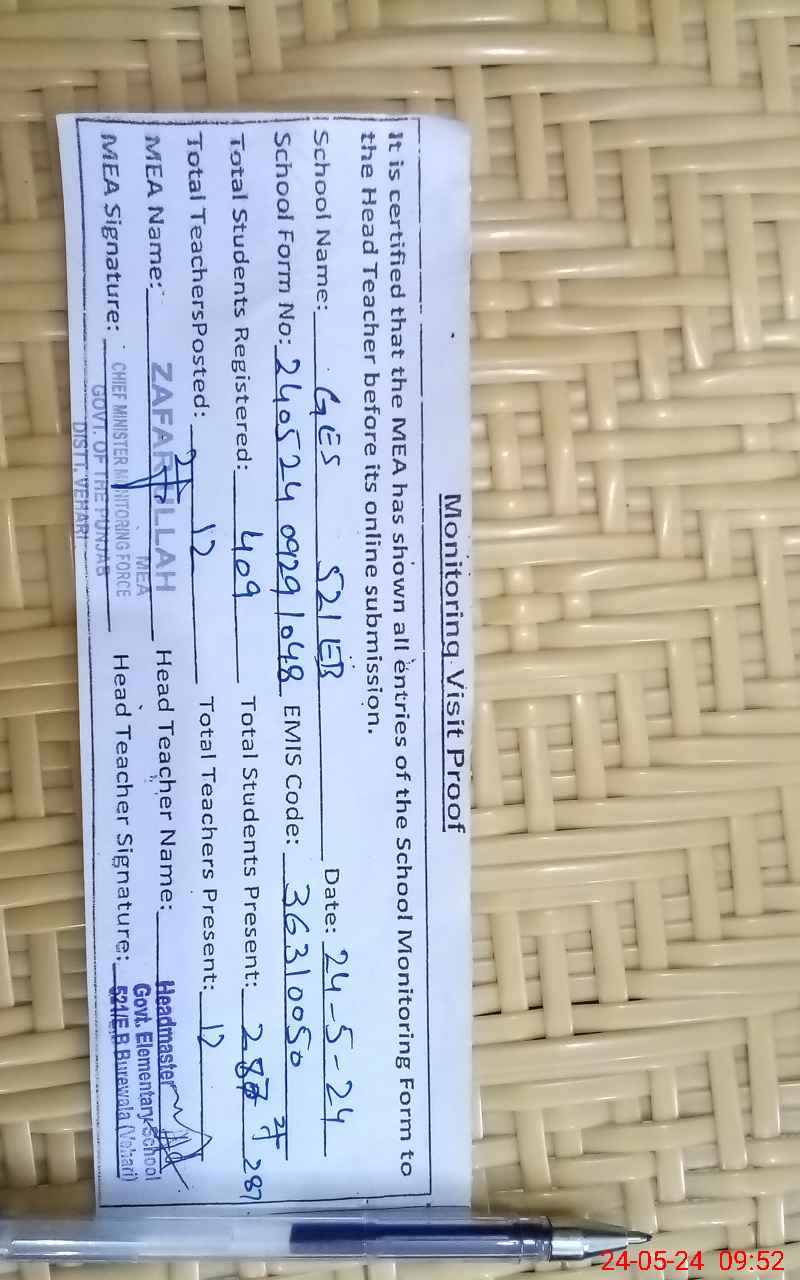 Monitoring Visit Proof
It is certified that the MEA has shown all entries of the School Monitoring Form to
the Head Teacher before its online submission.
School Name: GES 521 EB Date: 24-5-24
School Form No: 240524 09291048 EMIS Code: 36310050
Total Students Registered: 409 Total Students Present: 287 287
Total TeachersPosted: 12 Total Teachers Present: 12
MEA Name: ZAFAR ULLAH Head Teacher Name: Headmaster
MEA
MEA Signature: CHIEF MINISTER MONITORING FORCE Head Teacher Signature: Govt. Elementary School
GOVT. OF THE PUNJAB 521/E.B Burewala (Vehari)
DISTT. VEHARI
24-05-24 09:52